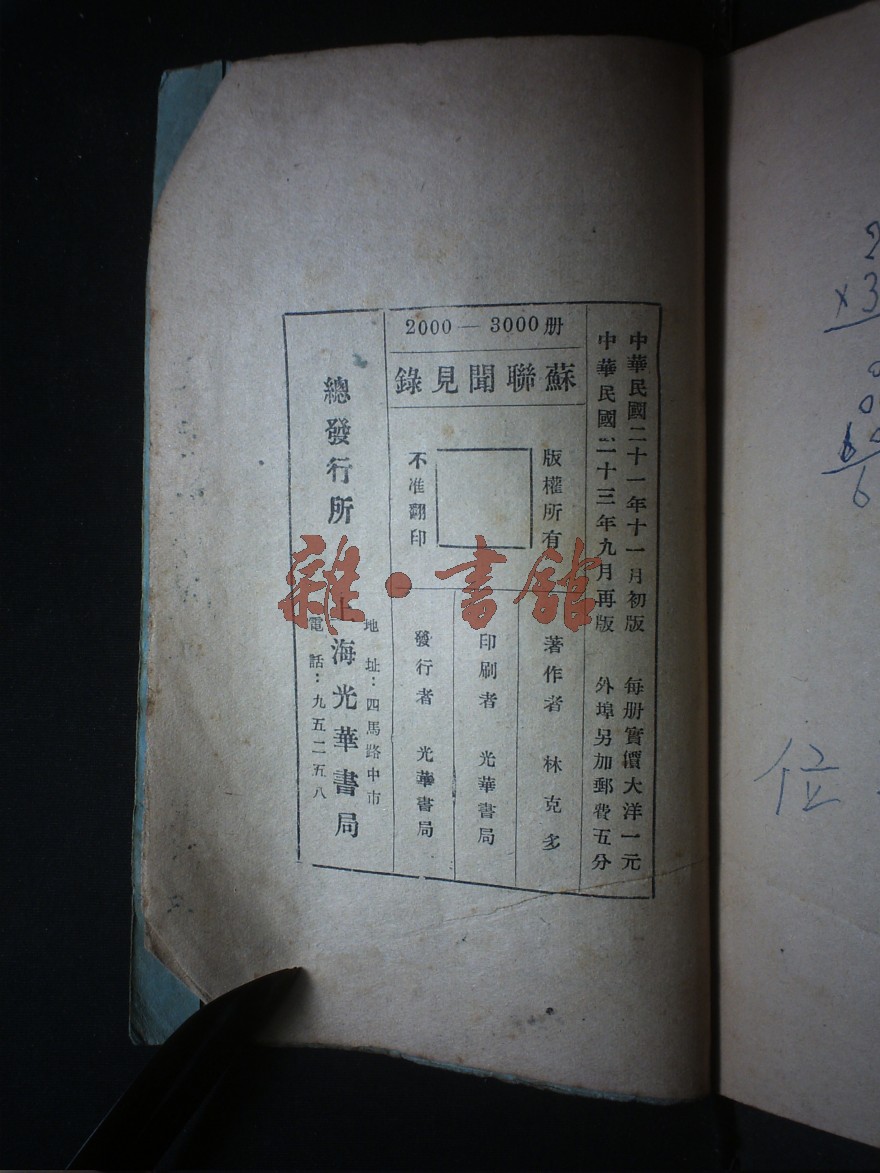 中華民國二十一年十一月初版　每册實價大洋一元
中華民國二十三年九月再版　外埠另加郵費五分
2000 — 3000 册
蘇聯聞見錄
版權所有
不准翻印
著作者　林克多
印刷者　光華書局
發行者　光華書局
地址：四馬路中市
總發行所　上海光華書局
電話：九五二五八
雜·書館
2
×3
0
6
位